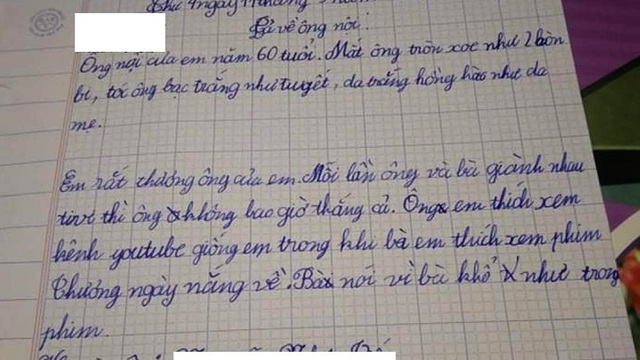 Thứ 4 ngày 11 tháng
Tả về ông nội.
Ông nội của em năm 60 tuổi. Mắt ông tròn xoe như 2 hòn
bi, tóc ông bạc trắng như tuyết, da trắng hồng hào như da
mẹ.
Em rất thương ông của em. Mỗi lần ông và bà giành nhau
tivi thì ông không bao giờ thắng cả. Ông em thích xem
kênh youtube giống em trong khi bà em thích xem phim
Thương ngày nắng về. Bà nói vì bà khổ như trong
phim.